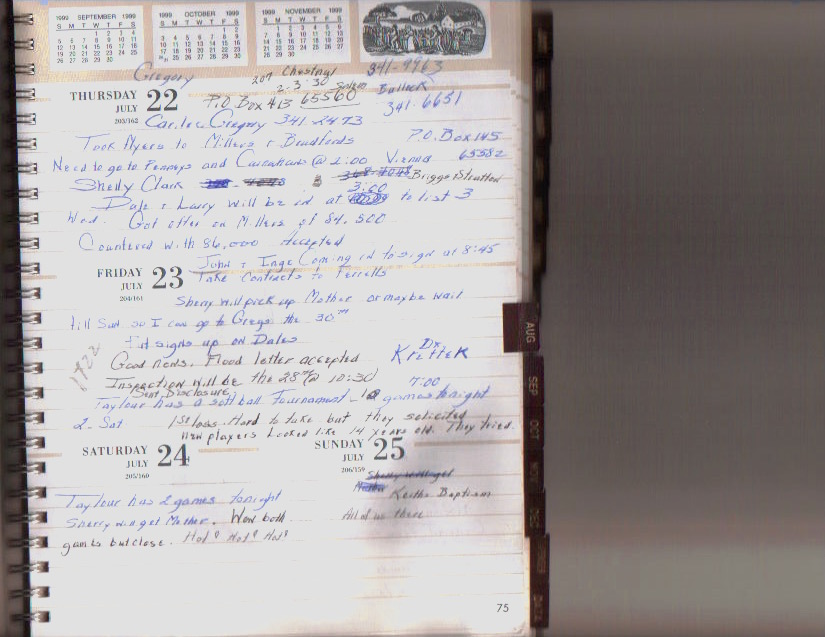 1999 SEPTEMBER 1999
S M T W T F S
1 2 3 4
5 6 7 8 9 10 11
12 13 14 15 16 17 18
19 20 21 22 23 24 25
26 27 28 29 30
1999 OCTOBER 1999
S M T W T F S
1 2
3 4 5 6 7 8 9
10 11 12 13 14 15 16
17 18 19 20 21 22 23
24 25 26 27 28 29 30
31
1999 NOVEMBER 1999
S M T W T F S
1 2 3 4 5 6
7 8 9 10 11 12 13
14 15 16 17 18 19 20
21 22 23 24 25 26 27
28 29 30
Gregory 207 Chestnut 341-9963
2-3-30 Salem Bullock
THURSDAY 22 P.O. Box 413 65560 341-6651
JULY
203/162 Gregory 341 2473
Took flyers to Millers & Bradfords P.O. Box 145
Need to go to Penneys and @ 2:00 Vienna 65582
Shelly Clark 368-4048 Briggs Stratton
3:00
Dale & Larry will be in at to list 3
Wed. Got offer on Millers of 84,500
Countered with 86,000 Accepted
John & Inge Coming in to sign at 8:45
FRIDAY 23 Take Contracts to Terrells
JULY
204/161
Sherry will pick up Mother or maybe wait
till Sun so I can go to Gregs the 30th
Put signs up on Dales
Good news. Flood letter accepted Dr. Krettek
1722
Inspection will be the 28th @ 10:30 7:00
Sent Disclosure
Taylour has a softball Tournament - games tonight
2 - Sat 1st loss - Hard to take but they solicited
new players Looked like 14 years old. They tried.
SATURDAY 24
JULY
205/160
SUNDAY 25
JULY
206/159
Taylour has 2 games tonight
Sherry will get Mother. Won both
games but close. Hot! Hot! Hot!
Keiths Baptism
All of us there
75
AUG
SEP
OCT
NOV
DEC
DATA